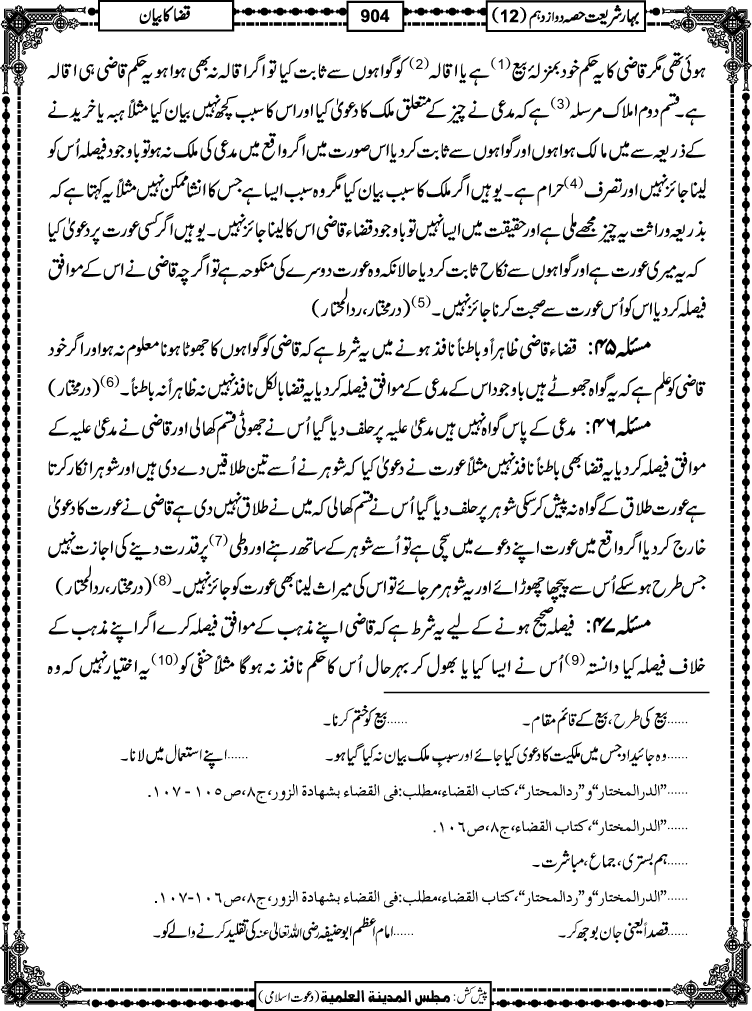 بہار شریعت حصہ دوازدہم (12)
904
قضا کا بیان
ہوئی تھی مگر قاضی کا یہ حکم خود بمنزلۂ بیع (1) ہے یا اقالہ (2) کو گواہوں سے ثابت کیا تو اگر اقالہ نہ بھی ہوا ہو یہ حکم قاضی ہی اقالہ
ہے۔ قسم دوم املاک مرسلہ (3) ہے کہ مدعی نے چیز کے متعلق ملک کا دعویٰ کیا اور اس کا سبب کچھ نہیں بیان کیا مثلاً ہبہ یا خریدنے
کے ذریعہ سے میں مالک ہوا ہوں اور گواہوں سے ثابت کردیا اس صورت میں اگر واقع میں مدعی کی ملک نہ ہو تو باوجود فیصلہ اُس کو
لینا جائز نہیں اور تصرف (4) حرام ہے۔ یوہیں اگر ملک کا سبب بیان کیا مگر وہ سبب ایسا ہے جس کا انشا ممکن نہیں مثلاً یہ کہتا ہے کہ
بذریعہ وراثت یہ چیز مجھے ملی ہے اور حقیقت میں ایسا نہیں تو باوجود قضاء قاضی اس کا لینا جائز نہیں۔ یوہیں اگر کسی عورت پر دعویٰ کیا
کہ یہ میری عورت ہے اور گواہوں سے نکاح ثابت کردیا حالانکہ وہ عورت دوسرے کی منکوحہ ہے تو اگرچہ قاضی نے اس کے موافق
فیصلہ کردیا اس کو اُس عورت سے صحبت کرنا جائز نہیں۔ (5) (درمختار، ردالمحتار)
مسئلہ ۴۵: قضاء قاضی ظاہراً و باطناً نافذ ہونے میں یہ شرط ہے کہ قاضی کو گواہوں کا جھوٹا ہونا معلوم نہ ہو اور اگر خود
قاضی کو علم ہے کہ یہ گواہ جھوٹے ہیں باوجود اس کے مدعی کے موافق فیصلہ کردیا یہ قضا بالکل نافذ نہیں نہ ظاہراً نہ باطناً۔ (6) (درمختار)
مسئلہ ۴۶: مدعی کے پاس گواہ نہیں ہیں مدعیٰ علیہ پر حلف دیا گیا اُس نے جھوٹی قسم کھالی اور قاضی نے مدعیٰ علیہ کے
موافق فیصلہ کردیا یہ قضا بھی باطناً نافذ نہیں مثلاً عورت نے دعویٰ کیا کہ شوہر نے اُسے تین طلاقیں دے دی ہیں اور شوہر انکار کرتا
ہے عورت طلاق کے گواہ نہ پیش کرسکی شوہر پر حلف دیا گیا اُس نے قسم کھالی کہ میں نے طلاق نہیں دی ہے قاضی نے عورت کا دعویٰ
خارج کردیا اگر واقع میں عورت اپنے دعوے میں سچی ہے تو اُسے شوہر کے ساتھ رہنے اور وطی (7) پر قدرت دینے کی اجازت نہیں
جس طرح ہوسکے اُس سے پیچھا چھوڑائے اور یہ شوہر مرجائے تو اس کی میراث لینا بھی عورت کو جائز نہیں۔ (8) (درمختار، ردالمحتار)
مسئلہ ۴۷: فیصلہ صحیح ہونے کے لیے یہ شرط ہے کہ قاضی اپنے مذہب کے موافق فیصلہ کرے اگر اپنے مذہب کے
خلاف فیصلہ کیا دانستہ (9) اُس نے ایسا کیا یا بھول کر بہرحال اُس کا حکم نافذ نہ ہوگا مثلاً حنفی کو (10) یہ اختیار نہیں کہ وہ
......بیع کی طرح، بیع کے قائم مقام۔ ......بیع کو ختم کرنا۔
......وہ جائیداد جس میں ملکیت کا دعویٰ کیا جائے اور سببِ ملک بیان نہ کیا گیا ہو۔ ......اپنے استعمال میں لانا۔
......”الدرالمختار“و”ردالمحتار“،کتاب القضاء،مطلب:فی القضاء بشهادة الزور،ج۸،ص۱۰۵-۱۰۷.
......”الدرالمختار“،کتاب القضاء،ج۸،ص۱۰۶.
......ہم بستری، جماع، مباشرت۔
......”الدرالمختار“و”ردالمحتار“،کتاب القضاء،مطلب:فی القضاء بشهادة الزور،ج۸،ص۱۰۶-۱۰۷.
......قصداً یعنی جان بوجھ کر۔ ......امام اعظم ابوحنیفہ رضی اللہ تعالیٰ عنہ کی تقلید کرنے والے کو۔
پیش کش: مجلس المدينة العلمية (دعوت اسلامی)